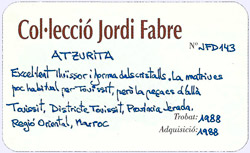 Col·lecció Jordi Fabre
Nº JFD143
ATZURITA
Excel·lent lluïssor i forma dels cristalls. La matriu es
poc habitual per Touissit, però la peça es d'allà
Touissit, Districte Touissit, Província Jerada,
Regió Oriental, Marroc
Trobat: 1988
Adquisició: 1988